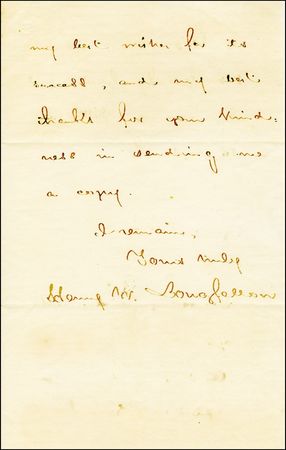 my best wishes for its
success, and my best
thanks for your kind-
ness in sending me
a copy.
I remain,
Yours truly
Henry W. Longfellow